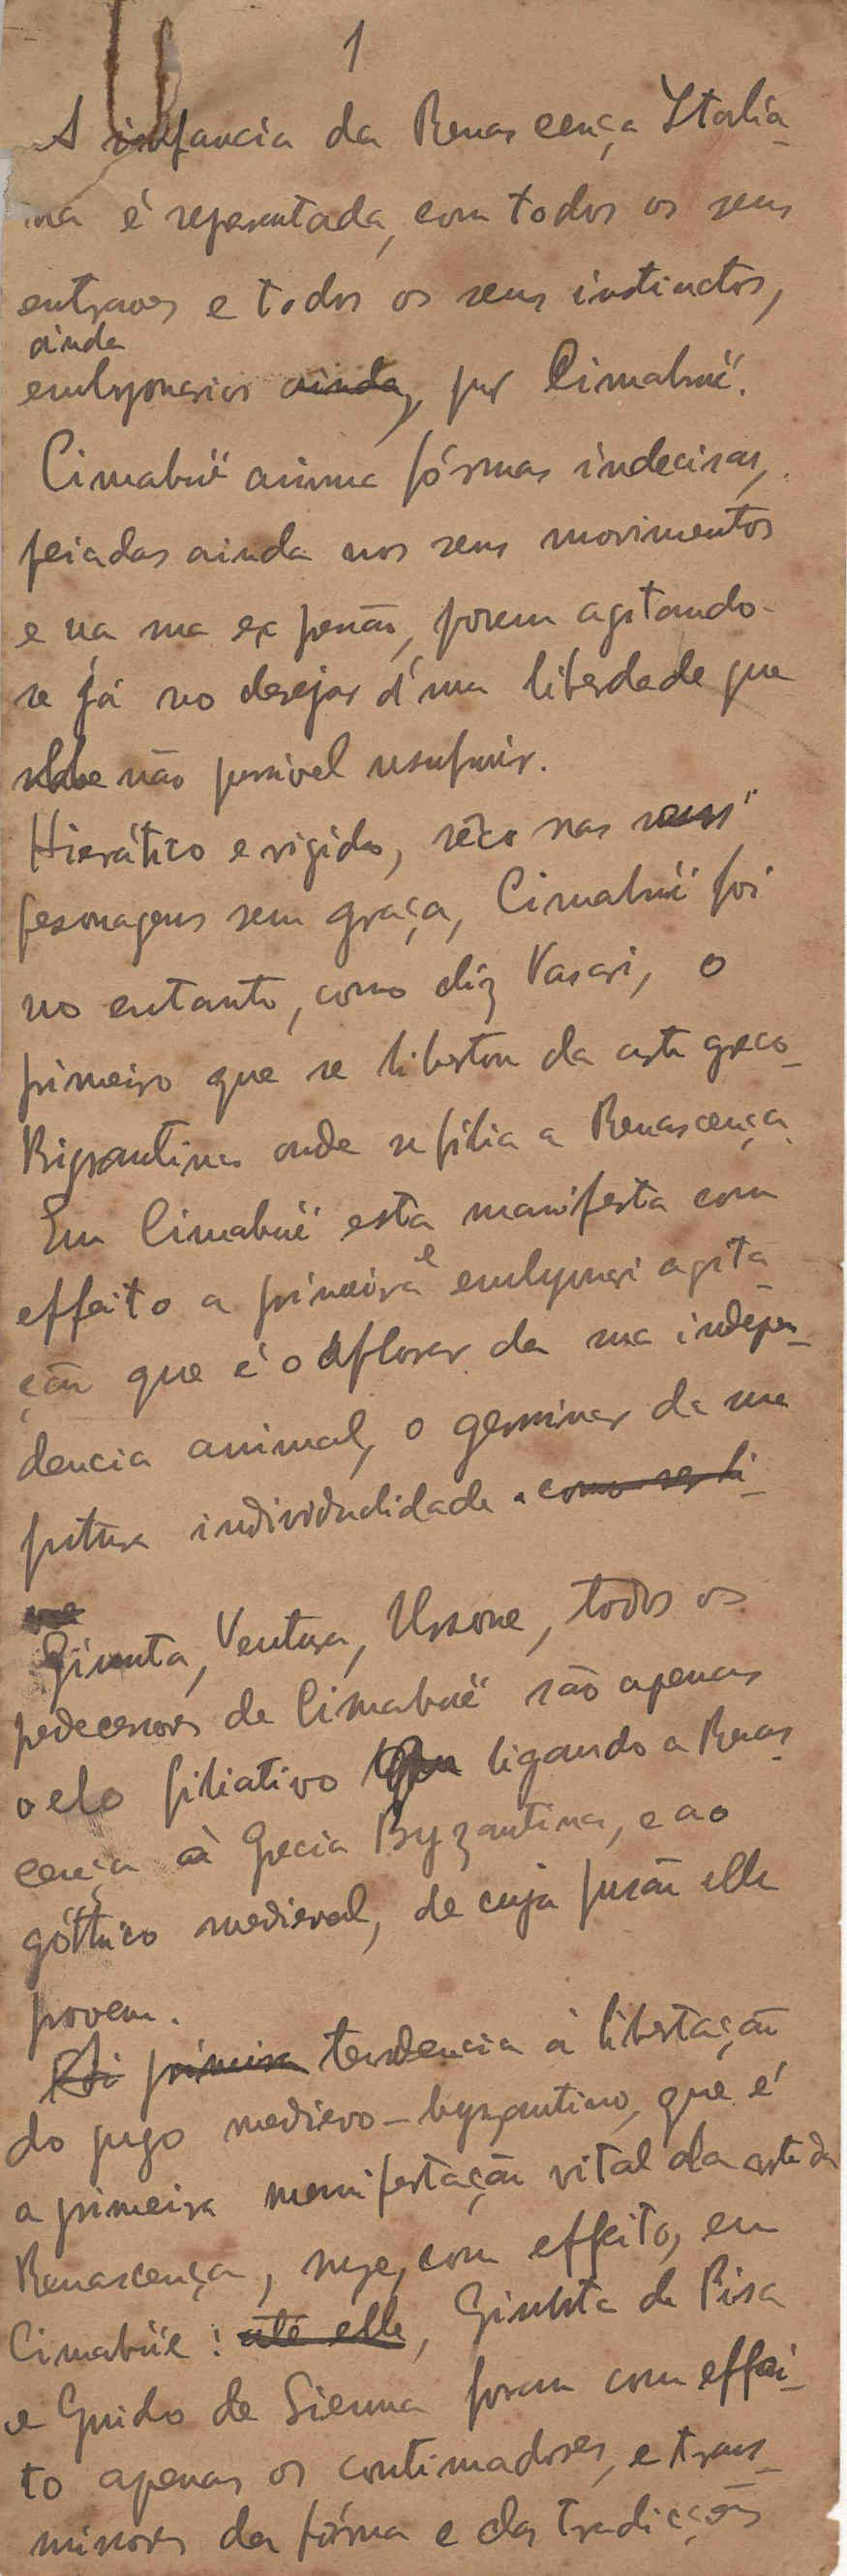 1
A infancia da Renascença Italia-
na é representada, com todos os seus
entraves e todos os seus instinctos,
ainda
embryonarios ainda, por Cimabuë.
Cimabuë anima fórmas indecisas,
peiadas ainda nos seus movimentos
e na sua expressão, porem agitando-
se já no desejar d'uma liberdade que
não possivel usufruir.
Hierático e rigido, sêco nas suas
personagens sem graça, Cimabuë foi
no entanto, como diz Vasari, o
primeiro que se libertou da arte greco-
Bizantina onde se filia a Renascença.
Em Cimabuë esta manifesta com
effeito a primeira e embryonari agita-
ção que é o aflorar da sua indepen-
dencia animal, o germinar da sua
futura individualidade. como ser li-
vre
Giunta, Ventura, Ursone, todos os
predecessores de Cimabuë são apenas
o elo filiativo ligando a Renas-
cença à Grecia Byzantina, e ao
góthico medieval, de cuja fusão elle
provem.
primeira tendencia à libertação
do jugo medievo-byzantino, que é
a primeira manifestação vital da arte da
Renascença, surge, com effeito, em
Cimabüe: até elle, Giunta de Pisa
e Guido de Sienna foram com effei-
to apenas os continuadores, e trans-
missores da fórma e das tradicções